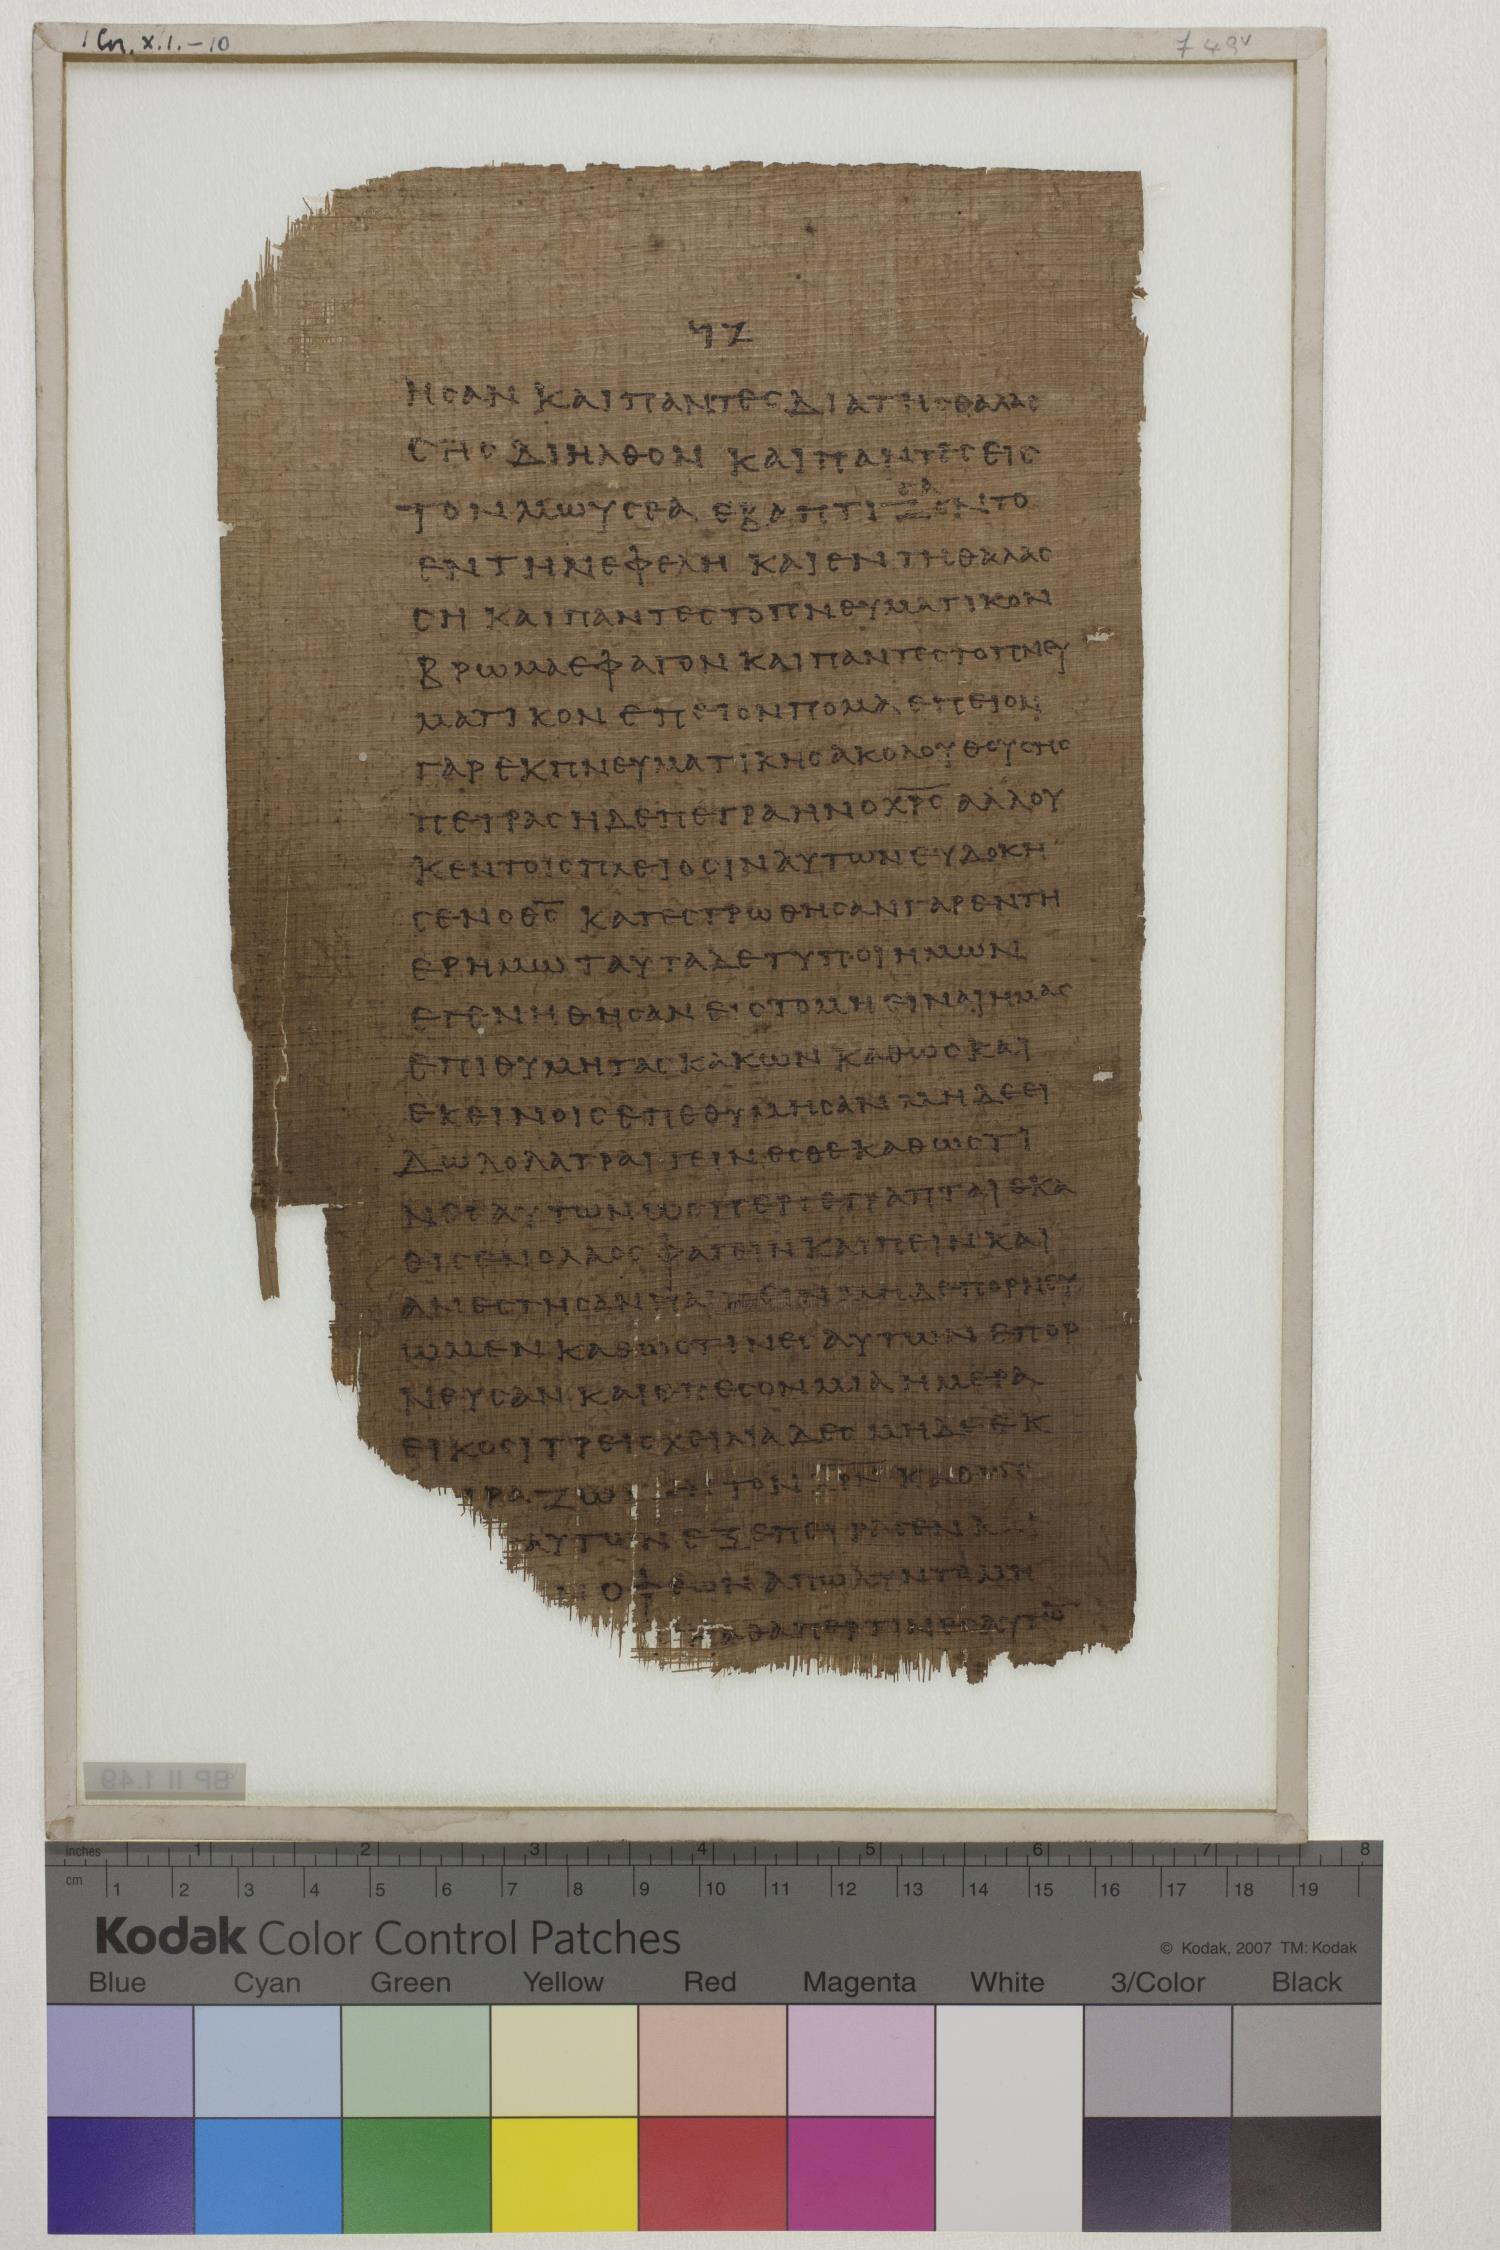 1 Cor. X. 1. - 10
f 49v
ϟζ
ΗϹΑΝ ΚΑΙ ΠΑΝΤΕϹ ΔΙΑ ΤΗϹ ΘΑΛΑϹ
ϹΗϹ ΔΙΗΛΘΟΝ ΚΑΙ ΠΑΝΤΕϹ ΕΙϹ
ΤΟΝ ΜΩΥϹΕΑ
ΕΝ ΤΗ ΝΕΦΕΛΗ ΚΑΙ ΕΝ ΤΗ ΘΑΛΑϹ
ϹΗ ΚΑΙ ΠΑΝΤΕϹ ΤΟ ΠΝΕΥΜΑΤΙΚΟΝ
ΒΡΩΜΑ ΕΦΑΓΟΝ ΚΑΙ ΠΑΝΤΕϹ ΤΟ ΠΝΕΥ
ΜΑΤΙΚΟΝ ΕΠΕΙΟΝ ΠΟΜΑ ΕΠΕΙΟΝ
ΓΑΡ ΕΚ ΠΝΕΥΜΑΤΙΚΗϹ ΑΚΟΛΟΥΘΟΥϹΗϹ
ΠΕΤΡΑϹ Η ΔΕ ΠΕΤΡΑ ΗΝ Ο ΧΡ̅Ϲ̅ ΑΛΛ ΟΥ
Κ ΕΝ ΤΟΙϹ ΠΛΕΙΟϹΙΝ ΑΥΤΩΝ ΕΥΔΟΚΗ
ϹΕΝ Ο Θ̅Ϲ̅ ΚΑΤΕϹΤΡΩΘΗϹΑΝ ΓΑΡ ΕΝ ΤΗ
ΕΡΗΜΩ ΤΑΥΤΑ ΔΕ ΤΥΠΟΙ ΗΜΩΝ
ΕΓΕΝΗΘΗϹΑΝ ΕΙϹ ΤΟ ΜΗ ΕΙΝΑΙ ΗΜΑϹ
ΕΠΙΘΥΜΗΤΑϹ ΚΑΚΩΝ ΚΑΘΩϹ ΚΑΙ
ΕΚΕΙΝΟΙϹ ΕΠΕΘΥΜΗϹΑΝ ΜΗΔΕ ΕΙ
ΔΩΛΟΛΑΤΡΑΙ ΓΕΙΝΕϹΘΕ ΚΑΘΩϹ ΤΙ
ΝΕϹ ΑΥΤΩΝ ΩϹΠΕΡ ΓΕΓΡΑΠΤΑΙ ΕΚΑ
ΘΙϹΕΝ Ο ΛΑΟϹ ΦΑΓΕΙΝ ΚΑΙ ΠΕΙΝ ΚΑΙ
ΑΝΕϹΤΗϹΑΝ ΜΗΔΕ ΠΟΡΝΕΥ
ΩΜΕΝ ΚΑΘΩϹ ΤΙΝΕϹ ΑΥΤΩΝ ΕΠΟΡ
ΝΕΥϹΑΝ ΚΑΙ ΕΠΕϹΟΝ ΜΙΑ ΗΜΕΡΑ
ΕΙΚΟϹΙ ΤΡΕΙϹ ΧΕΙΛΙΑΔΕϹ ΜΗΔΕ ΕΚ
ΙΡΑΖΩ ΤΟΝ ΧΡ̅Ν̅ ΚΑΘΩϹ
ΑΥΤΩΝ ΕΞΕΠΕΙΡΑϹΕΝ
Ν ΟΦΕΩΝ ΑΠΩΛΥΝΤΟ ΜΗ
ΚΑΘΑΠΕΡ ΤΙΝΕϹ ΑΥΤΩ̅
BP II 1.49
inches 1 2 3 4 5 6 7 8
cm 1 2 3 4 5 6 7 8 9 10 11 12 13 14 15 16 17 18 19
Kodak Color Control Patches
© Kodak, 2007 TM: Kodak
Blue Cyan Green Yellow Red Magenta White 3/Color Black